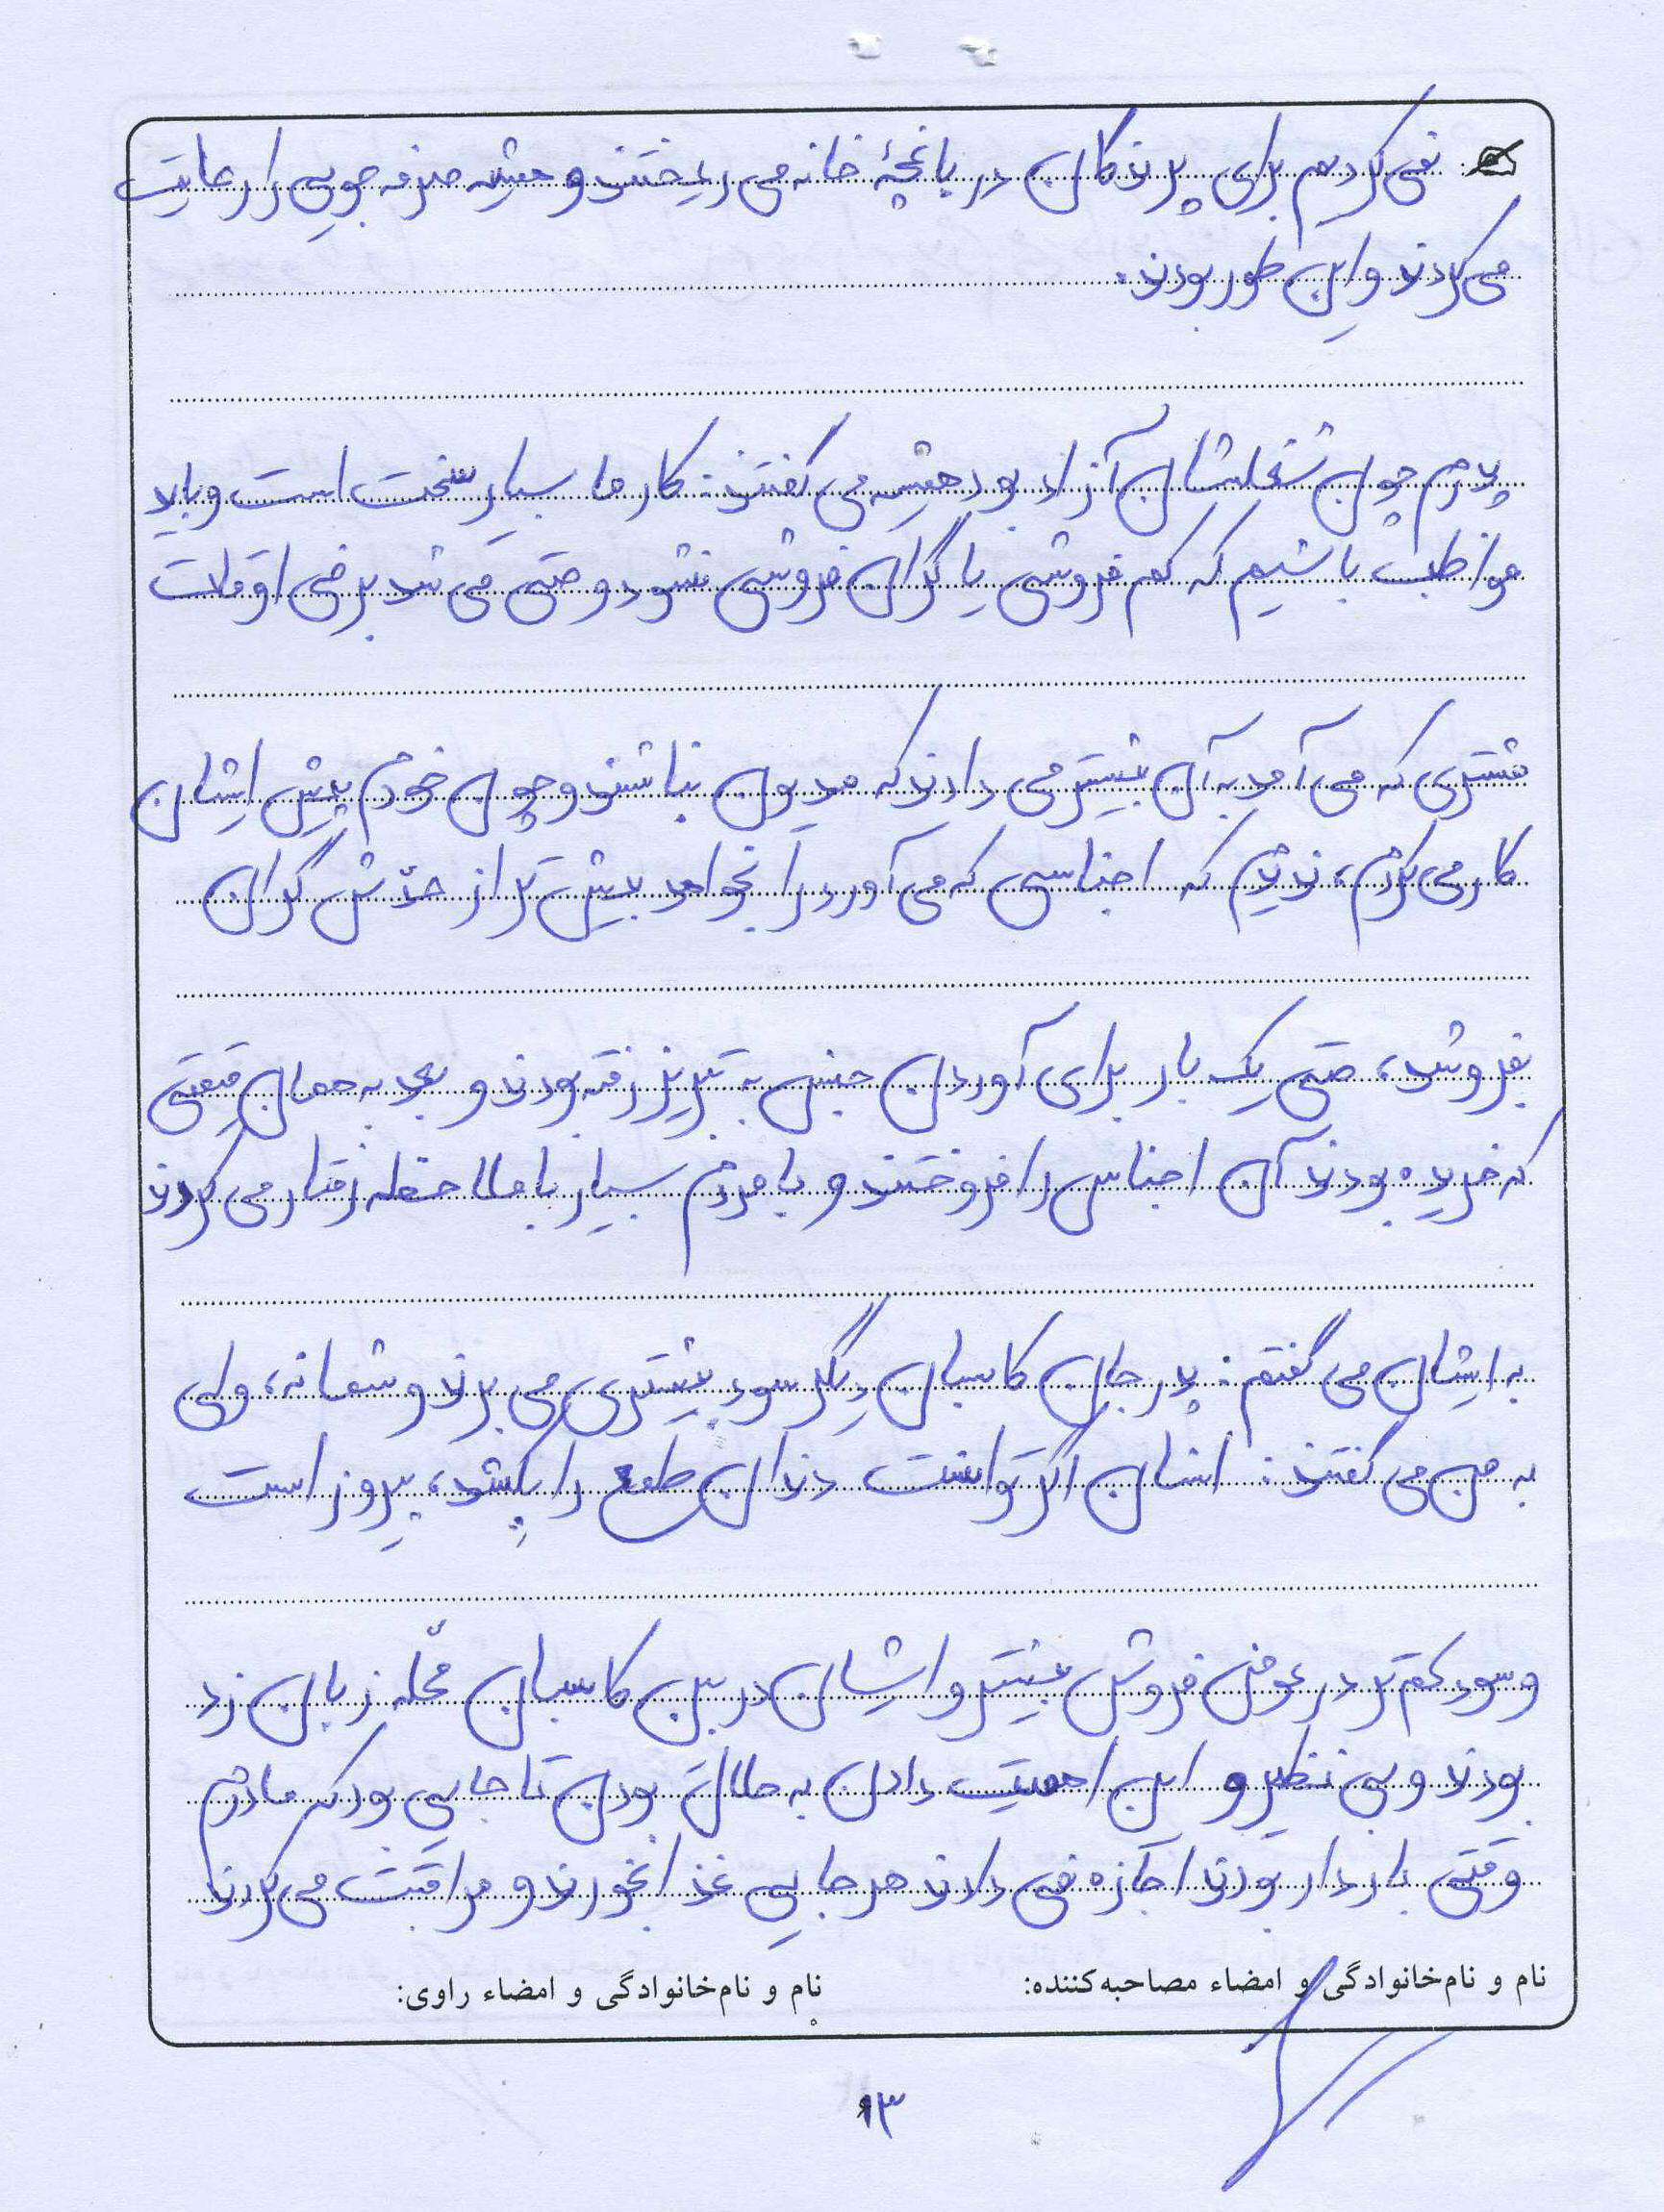 نمی‌کردیم برای پرندگان در باغچهٔ خانه می‌ریختند و همیشه صرفه‌جویی را رعایت
می‌کردند و این طور بودند.
پدرم چون شغلشان آزاد بود همیشه می‌گفتند: کار ما بسیار سخت است و باید
مواظب باشیم که کم فروشی یا گران فروشی نشود و حتی می‌شد برخی اوقات
مشتری که می‌آمد به آن بیشتر می‌دادند که مدیون نباشند و چون خودم پیش ایشان
کار می‌کردم، ندیدم که اجناسی که می‌آورد را بخواهد بیش‌تر از حدّش گران
بفروشد، حتی یک بار برای آوردن جنس به تبریز رفته بودند و بعد به همان قیمتی
که خریده بودند آن اجناس را فروختند و با مردم بسیار با ملاحظه رفتار می‌کردند
به ایشان می‌گفتم: پدر جان کاسبان دیگر سود بیشتری می‌برند و شما نه، ولی
به من می‌گفتند: انسان اگر توانست دندان طمع را بکشد، پیروز است
و سود کم‌تر در عوض فروش بیشتر و ایشان در بین کاسبان محلّه زبان زد
بودند و بی نظیر و این اهمیت دادن به حلال بودن تا جایی بود که مادرم
وقتی باردار بودند اجازه نمی‌دادند هر جایی غذا بخورند و مراقبت می‌کردند
نام و نام‌خانوادگی و امضاء مصاحبه‌کننده: نام و نام‌خانوادگی و امضاء راوی:
۱۳